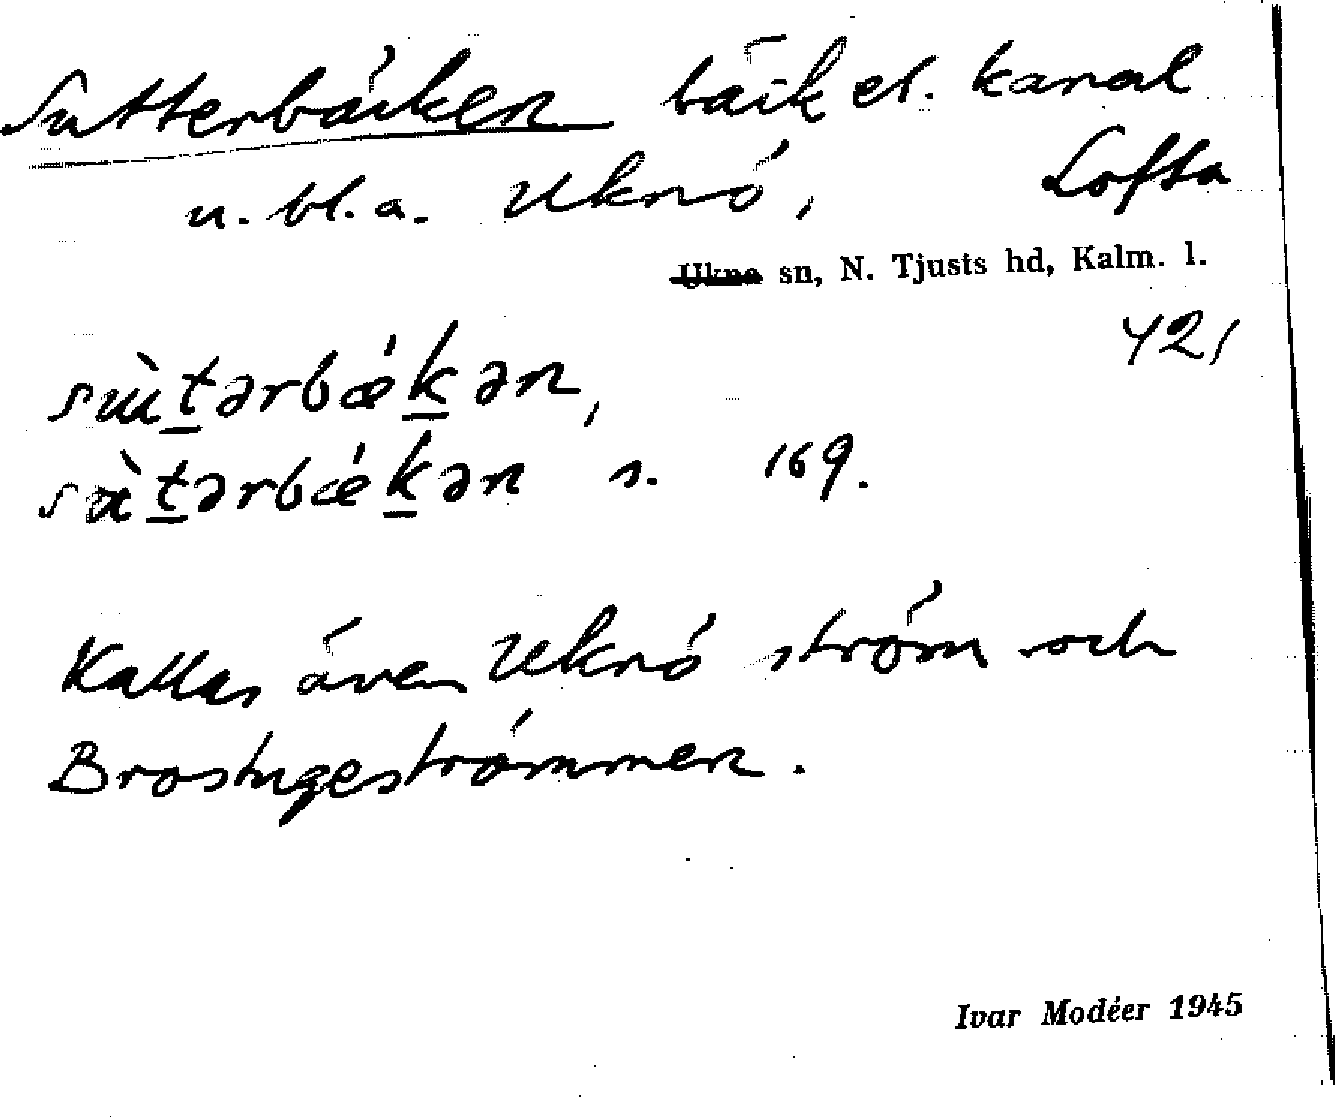 Sutterbäcken bäck el. kanal
u. bl. a. Uknö, Lofta
Ukna sn, N. Tjusts hd, Kalm. l.
421
sùt̲ərbǽk̲ən,
sàt̲ərbǽk̲ən s. 169.
Kallas även Uknö ström och
Brostugeströmmen.
Ivar Modéer 1945